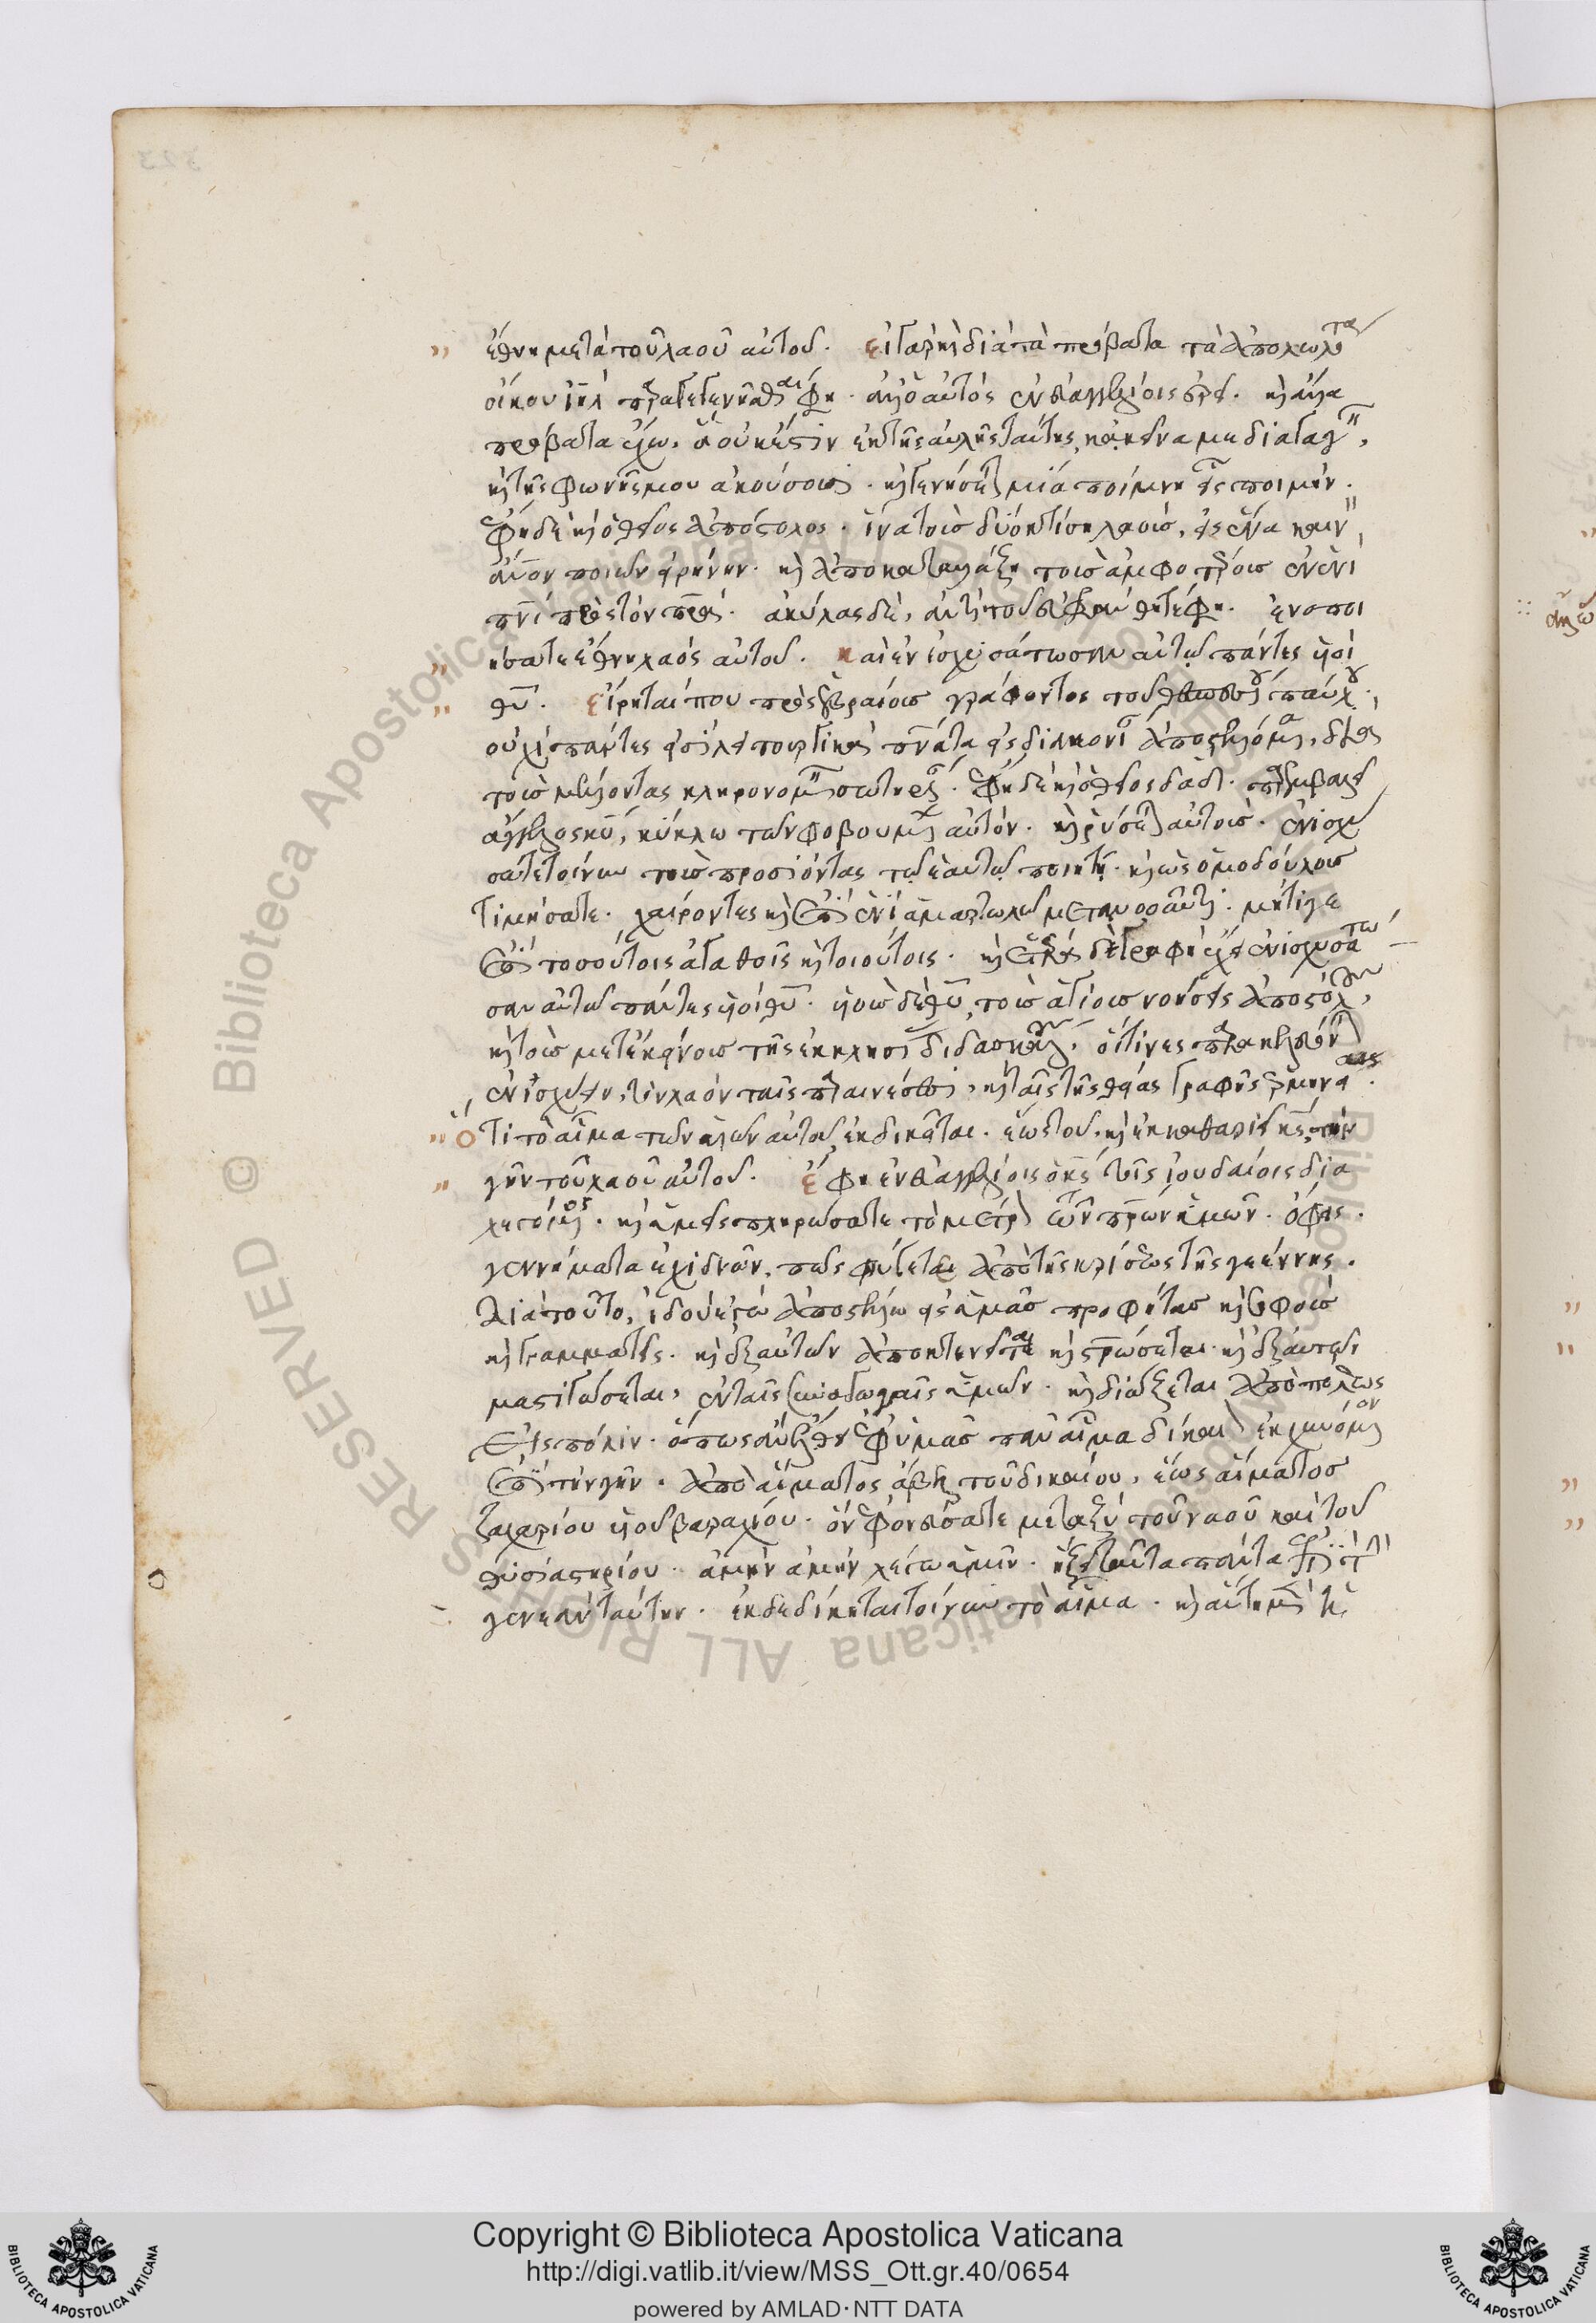 ἔθνη μετὰ τοῦ λαοῦ αὐτοῦ. εἰ γὰρ καὶ διὰ τὰ πρόβατα τὰ ἀπολωλότα
οἴκου ἰηλ παραγεγενῆσθαι ἔφη. ἀλλ' ὁ αὐτὸς ἐν εὐαγγελίοις καὶ ἄλλα
πρόβατα ἔχω, ἃ οὐκ ἔστιν ἐκ τῆς αὐλῆς ταύτης,
καὶ τῆς φωνῆς μου ἀκούσουσι. καὶ γενήσεται μία ποίμνη εἷς ποιμήν.
ἔφη δὲ καὶ ὁ θεῖος ἀπόστολος. ἵνα τοὺς δύο κτίσῃ λαοὺς, εἰς ἕνα καινὸν
ἄνον ποιῶν εἰρήνην. καὶ ἀποκαταλλάξῃ τοὺς ἀμφοτέρους ἐν ἑνὶ
πνι πρὸς τὸν πρα. ἀκύλας δὲ, ἀντὶ τοῦ εὐφράνθητε ἔφη.
ἔθνη λαὸς αὐτοῦ. καὶ ἐνισχυσάτωσαν αὐτῷ πάντες υἱοὶ
θυ. εἴρηταί που πρὸς ἑβραίους γράφοντος τοῦ παύλου.
οὐχὶ πάντες εἰσὶ λειτουργικὰ πνατα εἰς διακονίαν ἀποστελλόμενα, διὰ
τοὺς μέλλοντας κληρονομεῖν σωτηρίαν. ἔφη δὲ καὶ ὁ θεῖος δαδ. παρεμβαλεῖ
ἄγγελος κυ, κύκλῳ τῶν φοβουμένων αὐτόν. καὶ ῥύσεται αὐτούς. ἐνισχύ
σατε τοίνυν τοὺς προσιόντας τῷ ἑαυτῶν ποιητῇ. καὶ ὡς ὁμοδούλους
τιμήσατε. χαίροντες καὶ ἐπὶ ἑνὶ ἁμαρτωλῷ μετανοοῦντι. μήτιγε
ἐπὶ τοσούτοις ἀγαθοῖς καὶ τοιούτοις. καὶ ἐπειδὴ δὲ γραφὴ ἔχει ἐνισχυσάτω
σαν αὐτῷ πάντες υἱοὶ θυ. υἱοὺς δὲ θυ, τοὺς ἁγίους νοήσεις ἀποστόλους,
καὶ τοὺς μετ' ἐκείνους τῆς ἐκκλησίας διδασκάλους, οἵτινες παρεκλήθησαν
ἐνισχύειν, τὸν λαὸν ταῖς παραινέσεσι, καὶ ταῖς τῆς θείας γραφῆς ἑρμηνείαις.
ὅτι τὸ αἷμα τῶν υἱῶν αὐτοῦ ἐκδικᾶται. ἕως τοῦ, καὶ ἐκκαθαριεῖ κς τὴν
γῆν τοῦ λαοῦ αὐτοῦ. ἔφη ἐν εὐαγγελίοις ὁ κς τοῖς ἰουδαίοις δια
λεγόμενος. καὶ ὑμεῖς πληρώσατε τὸ μέτρον τῶν πρων ὑμῶν. ὄφεις.
γεννήματα ἐχιδνῶν, πῶς φύγετε ἀπὸ τῆς κρίσεως τῆς γεέννης.
Διὰ τοῦτο, ἰδοὺ ἐγὼ ἀποστέλλω εἰς ὑμᾶς προφήτας καὶ σοφοὺς
καὶ γραμματεῖς. καὶ ἐξ αὐτῶν ἀποκτενεῖτε καὶ σταυρώσεται. καὶ ἐξ αὐτῶν
μαστιγώσεται, ἐν ταῖς συναγωγαῖς ὑμῶν. καὶ διώξεται ἀπὸ πόλεως
εἰς πόλιν. ὅπως ἂν ἔλθῃ ἐφ' ὑμᾶς πᾶν αἷμα δίκαιον ἐκχυνόμενον
ἐπὶ τὴν γῆν. ἀπὸ αἵματος ἄβελ τοῦ δικαίου, ἕως αἵματος
ζαχαρίου υἱοῦ βαραχίου. ὃν ἐφονεύσατε μεταξὺ τοῦ ναοῦ καὶ τοῦ
θυσιαστηρίου. ἀμὴν ἀμὴν λέγω ὑμῖν. ἥξει ταῦτα πάντα ἐπὶ τὴν
γενεὰν ταύτην. ἐκδεδίκηται τοίνυν τὸ αἷμα.
Copyright © Biblioteca Apostolica Vaticana
http://digi.vatlib.it/view/MSS_Ott.gr.40/0654
powered by AMLAD·NTT DATA
BIBLIOTECA APOSTOLICA VATICANA
BIBLIOTECA APOSTOLICA VATICANA